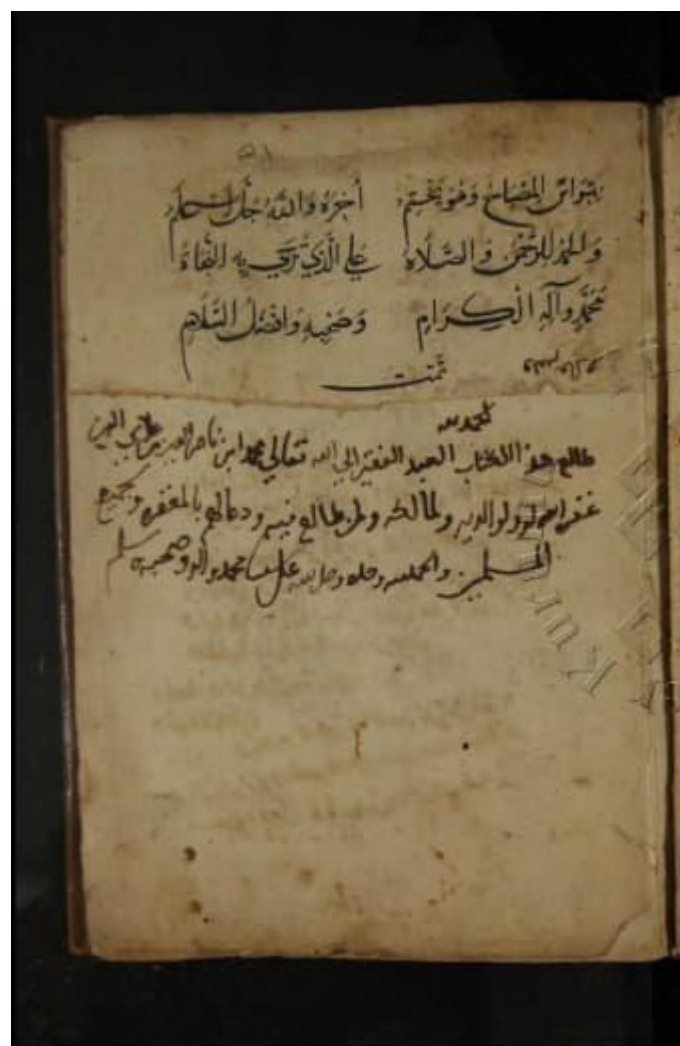 وهو يختم أجره والله جل أعلم
والحمد للرحمن والصلاه على الذي به النجاة
محمد وآله الكرام وصحبه وافضل السلام
تمت
الحمد لله
طالع هذا الكتاب العبد الفقير الي الله تعالي محمد ابن ناصر الدين
غفر الله له ولوالديه ولمالكه ولمن طالع فيه ودعا لهم بالمغفره ولجميع
المسلمين والحمد لله وحده وصلى الله على سيدنا محمد واله وصحبه وسلم